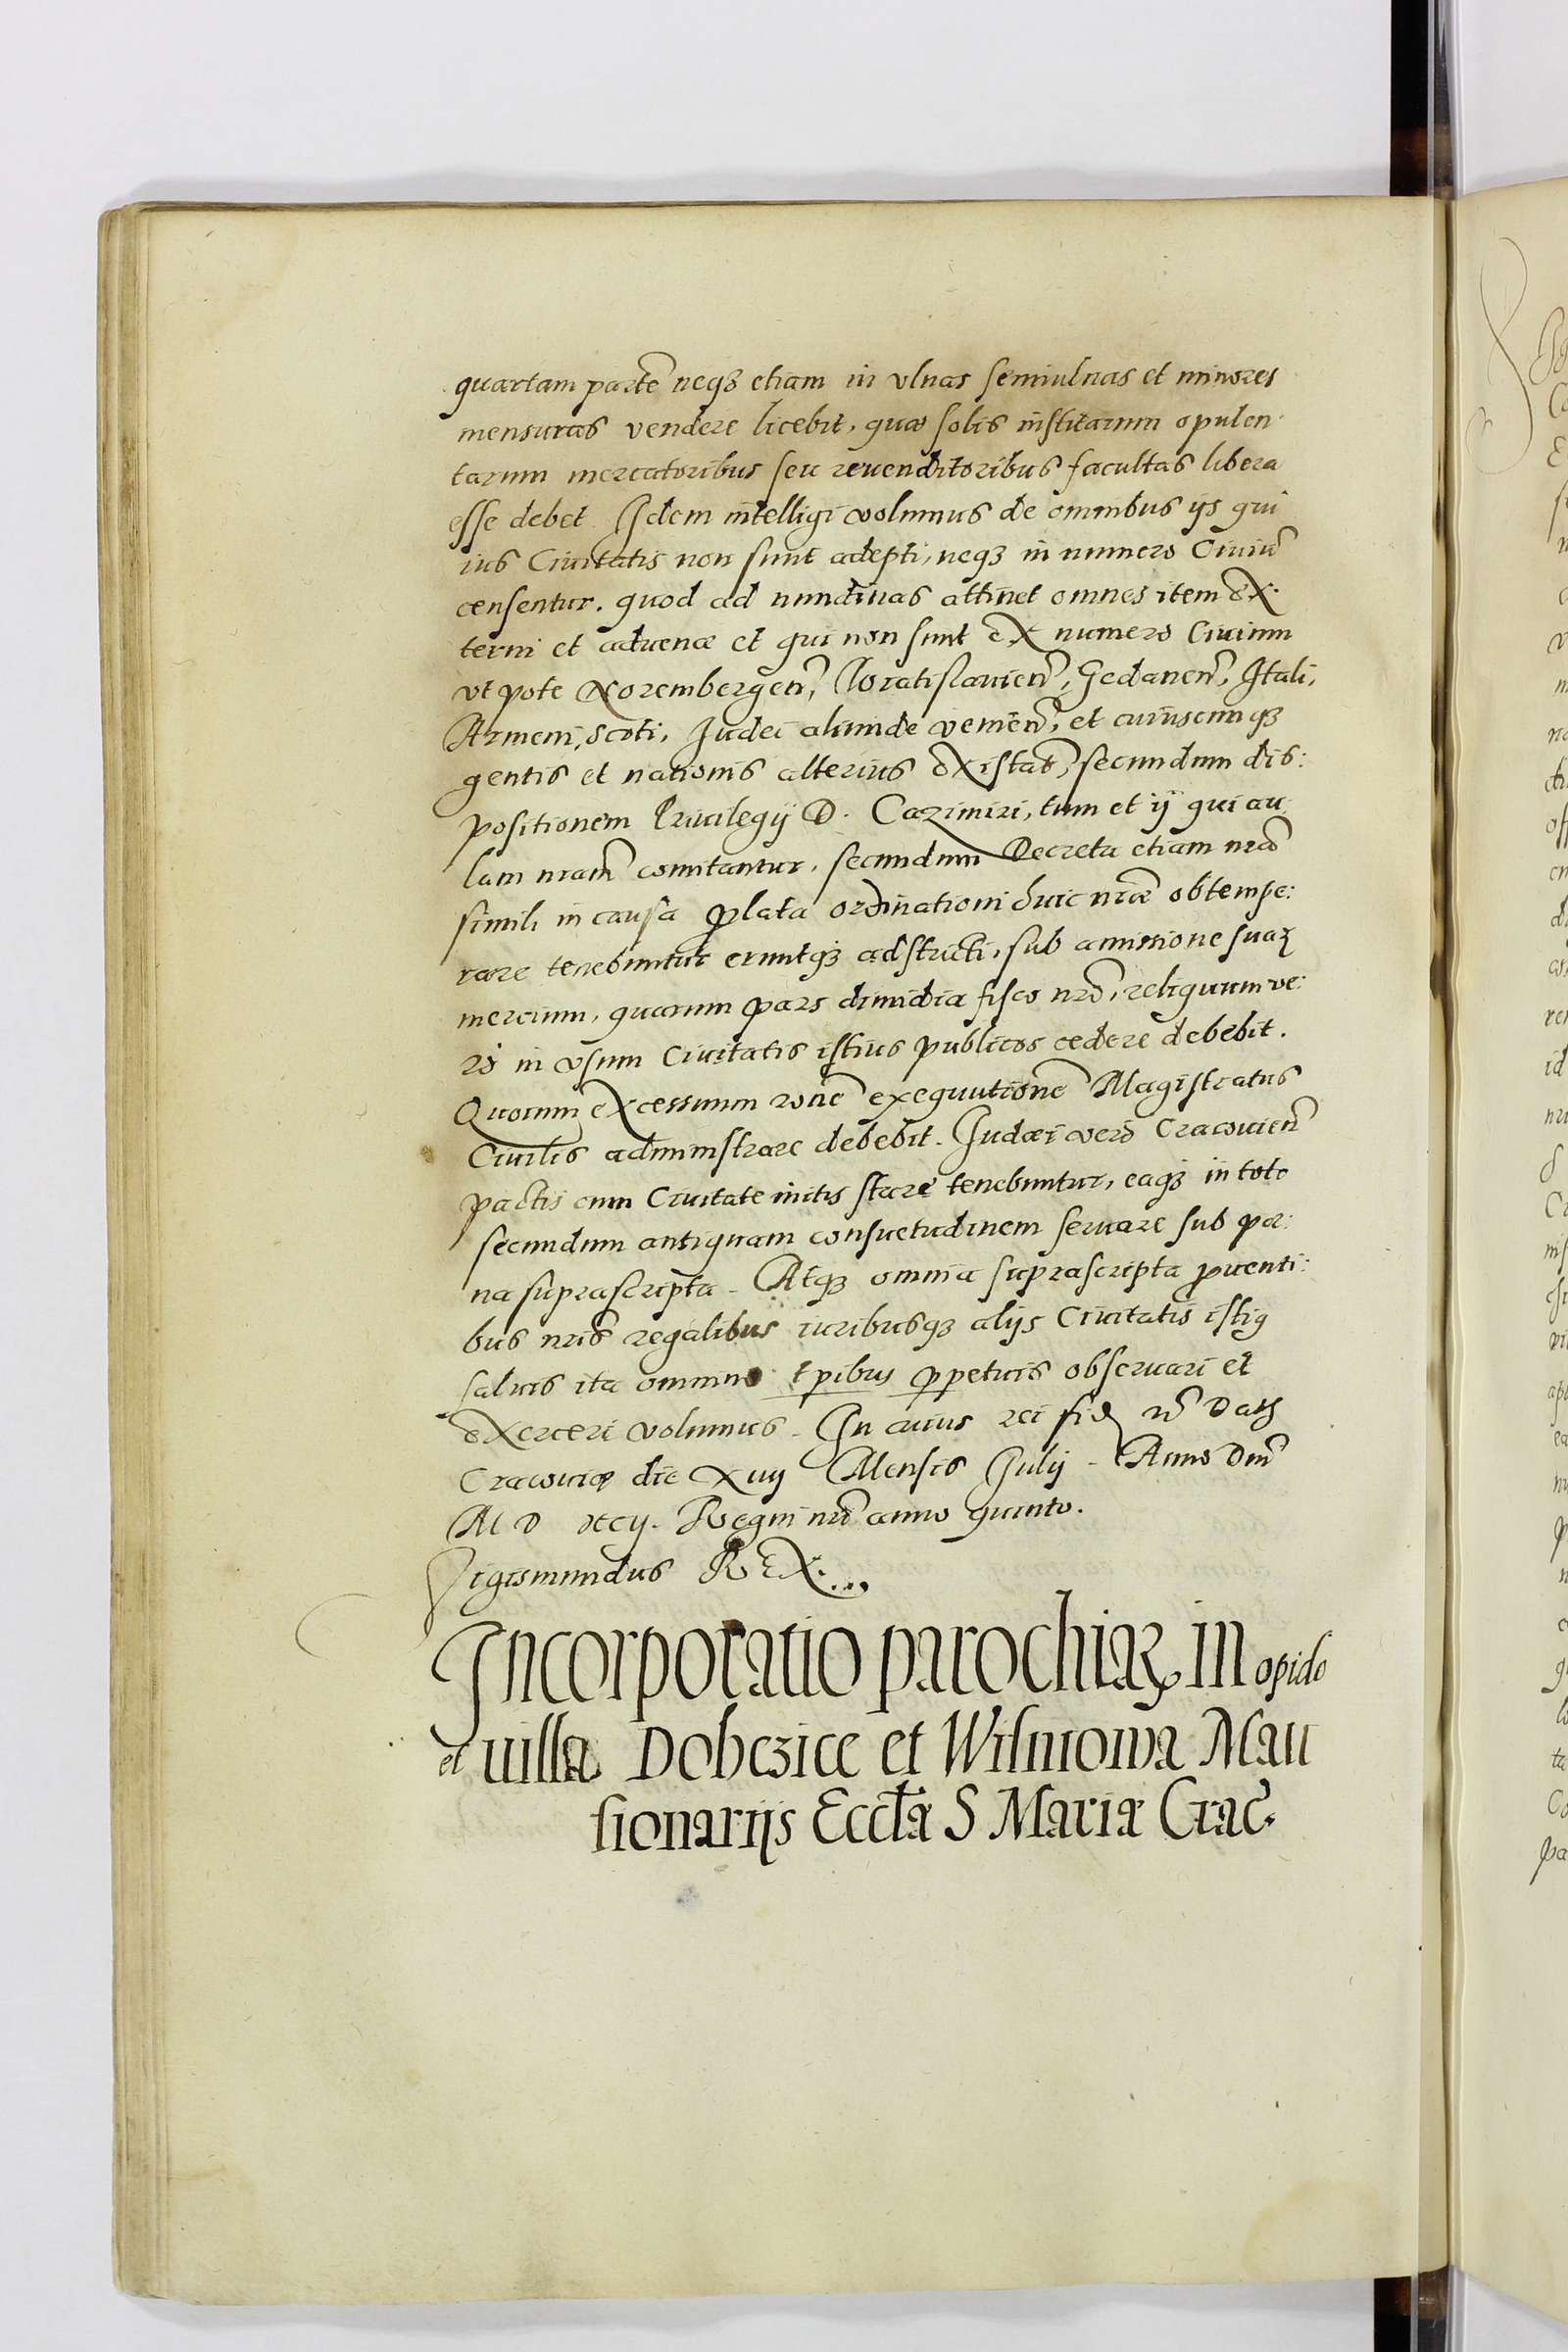 quartam parte͂ neqꝫ etiam in vlnas semiulnas et minores
mensuras vendere licebit, quæ solis institarum opulen
tarum mercatoribus seu reuenditoribus facultas libera
esse debet. Idem intelligi volumus de omnibus ijs qui
ius Ciuitatis non sunt adepti, neqꝫ in numero Ciuiu͂
censentur. quod ad nundinas attinet omnes item ex
terni et aduenæ et qui non sunt ex numero Ciuium
vt pote Norembergen͂, Vratislauien͂, Gedanen͂, Itali,
Armeni, Scoti, Iudei aliunde venien͂, et cuiuscunqꝫ
gentis et nationis alterius existat͂, secundum dis:
positionem Priuilegij D. Cazimiri, tum et ij qui au
lam nram͂ comitantur, secundum Decreta etiam nra͂
simili in causa ꝓlata ordinationi huic nræ͂ obtempe:
rare tenebuntur eruntqꝫ adstricti, sub amissione suaꝝ
mercium, quarum pars dimidia fisco nro͂, reliquum ve:
ro in vsum Ciuitatis istius publicos cedere debebit.
Quorum excessuum rone͂ exequutione͂ Magistratus
Ciuilis administrare debebit. Iudæi vero Cracouien͂
pactis cum Ciuitate initis stare tenebuntur, eaqꝫ in toto
secundum antiquam consuetudinem seruare sub pœ:
na suprascripta. Atqꝫ omnia suprascripta ꝓuenti:
bus nris͂ regalibus iuribusqꝫ alijs Ciuitatis istiꝯ
saluis ita omnino tpibus ꝑpetuis obseruari et
exerceri volumus. In cuius rei fid͂ Datꝫ
Cracouiæ die Mensis Iulij. Anno Dni͂
M D xcij. Regni nri͂ anno quinto.
Sigismundus REX.
Incorporatio parochiaꝝ in opido
et uilla Dobczice et Wisniowa Man
sionarijs Eccl͂æ S Mariæ Crac͂.